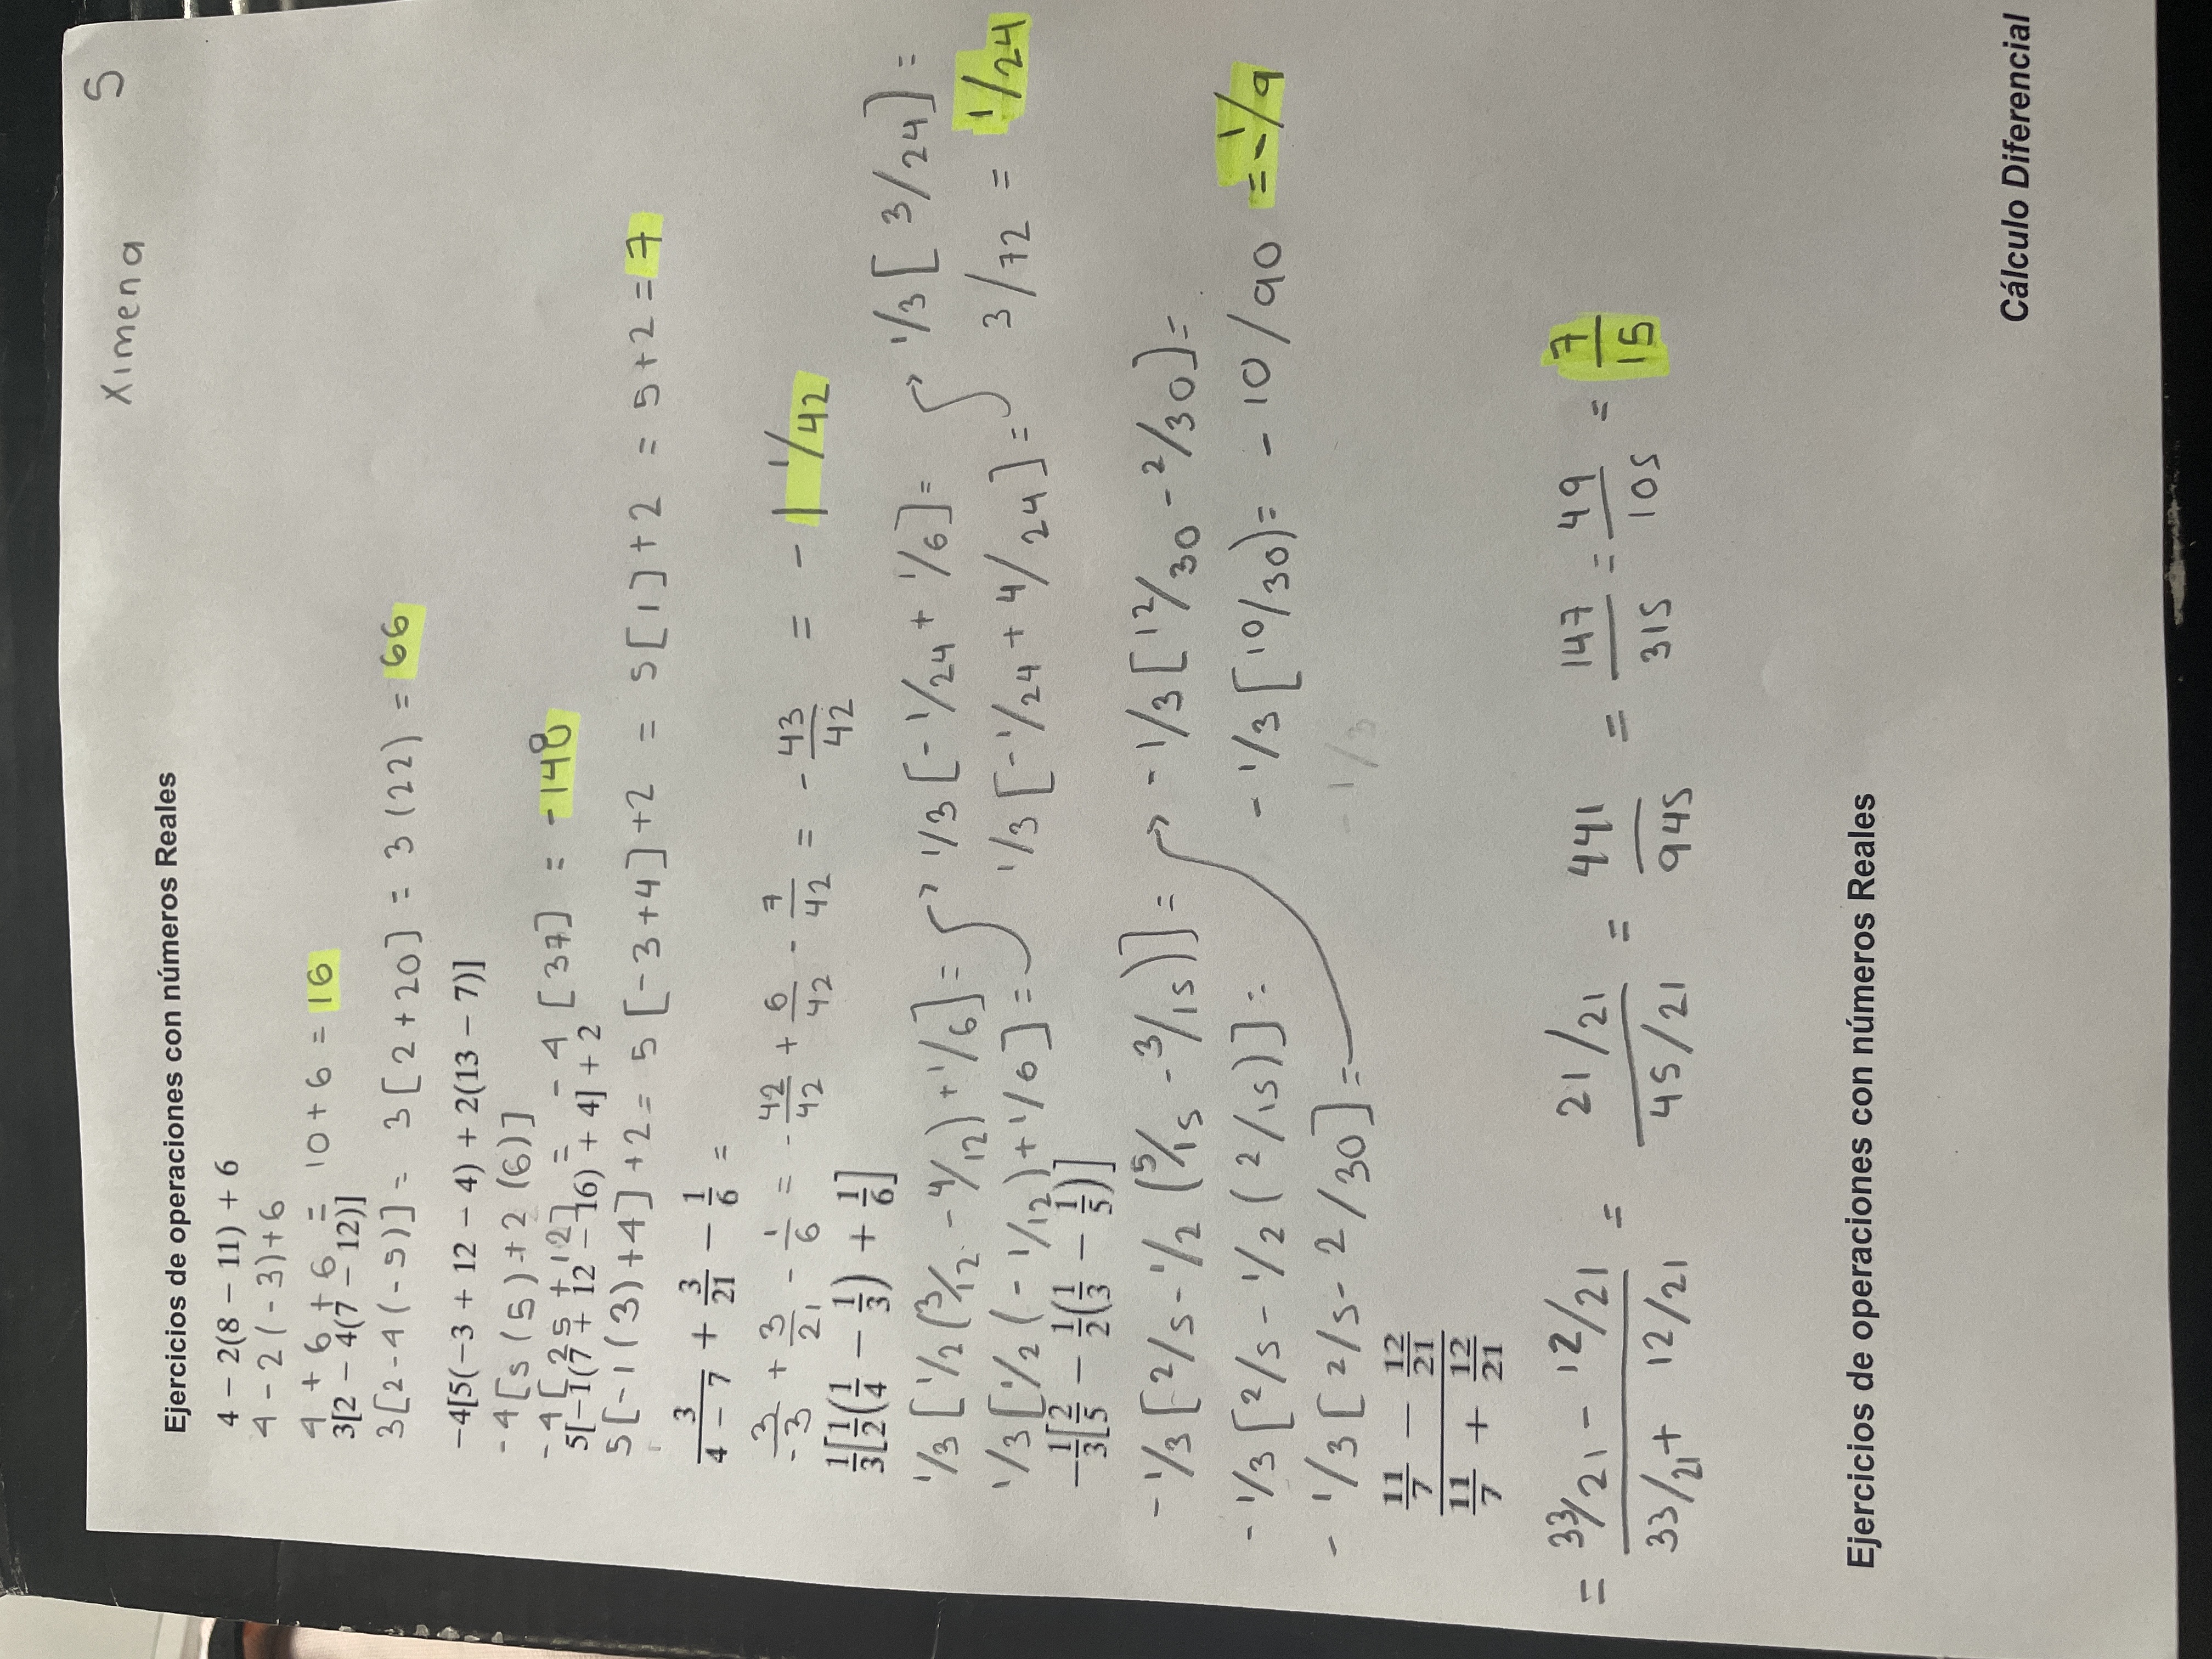 Ximena 5
Ejercicios de operaciones con números Reales
4 − 2(8 − 11) + 6
4 - 2 (-3) + 6
4 + 6 + 6 = 10 + 6 = 16
3[2 − 4(7 − 12)]
3[2 - 4(-5)] = 3[2+20] = 3(22) = 66
−4[5(−3 + 12 − 4) + 2(13 − 7)]
-4[5(5)+2(6)]
-4[25+12] = -4[37] = -148
5[−1(7 + 12 − 16) + 4] + 2
5[-1(3)+4]+2 = 5[-3+4]+2 = 5[1]+2 = 5+2 = 7
3/(4 − 7) + 3/21 − 1/6 =
3/-3 + 3/21 - 1/6 = -42/42 + 6/42 - 7/42 = -43/42 = -1 1/42
1/3[1/2(1/4 − 1/3) + 1/6]
1/3[1/2(3/12 - 4/12)+1/6] = 1/3[-1/24 + 1/6] = 1/3[3/24] =
1/3[1/2(-1/12)+1/6] = 1/3[-1/24 + 4/24] = 3/72 = 1/24
−1/3[2/5 − 1/2(1/3 − 1/5)]
-1/3[2/5 - 1/2(5/15 - 3/15)] = -1/3[12/30 - 2/30] =
-1/3[2/5 - 1/2(2/15)] = -1/3[10/30) = -10/90 = -1/9
-1/3[2/5 - 2/30] = -1/3
(11/7 − 12/21)/(11/7 + 12/21)
= (33/21 - 12/21)/(33/21 + 12/21) = (21/21)/(45/21) = 441/945 = 147/315 = 49/105 = 7/15
Ejercicios de operaciones con números Reales
Cálculo Diferencial